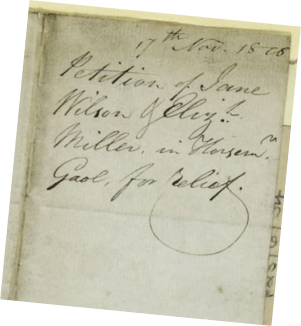 17th Nov. 1808
Petition of Jane
Wilson & Elizh.
Miller, in Horsemr.
Gaol, for relief.